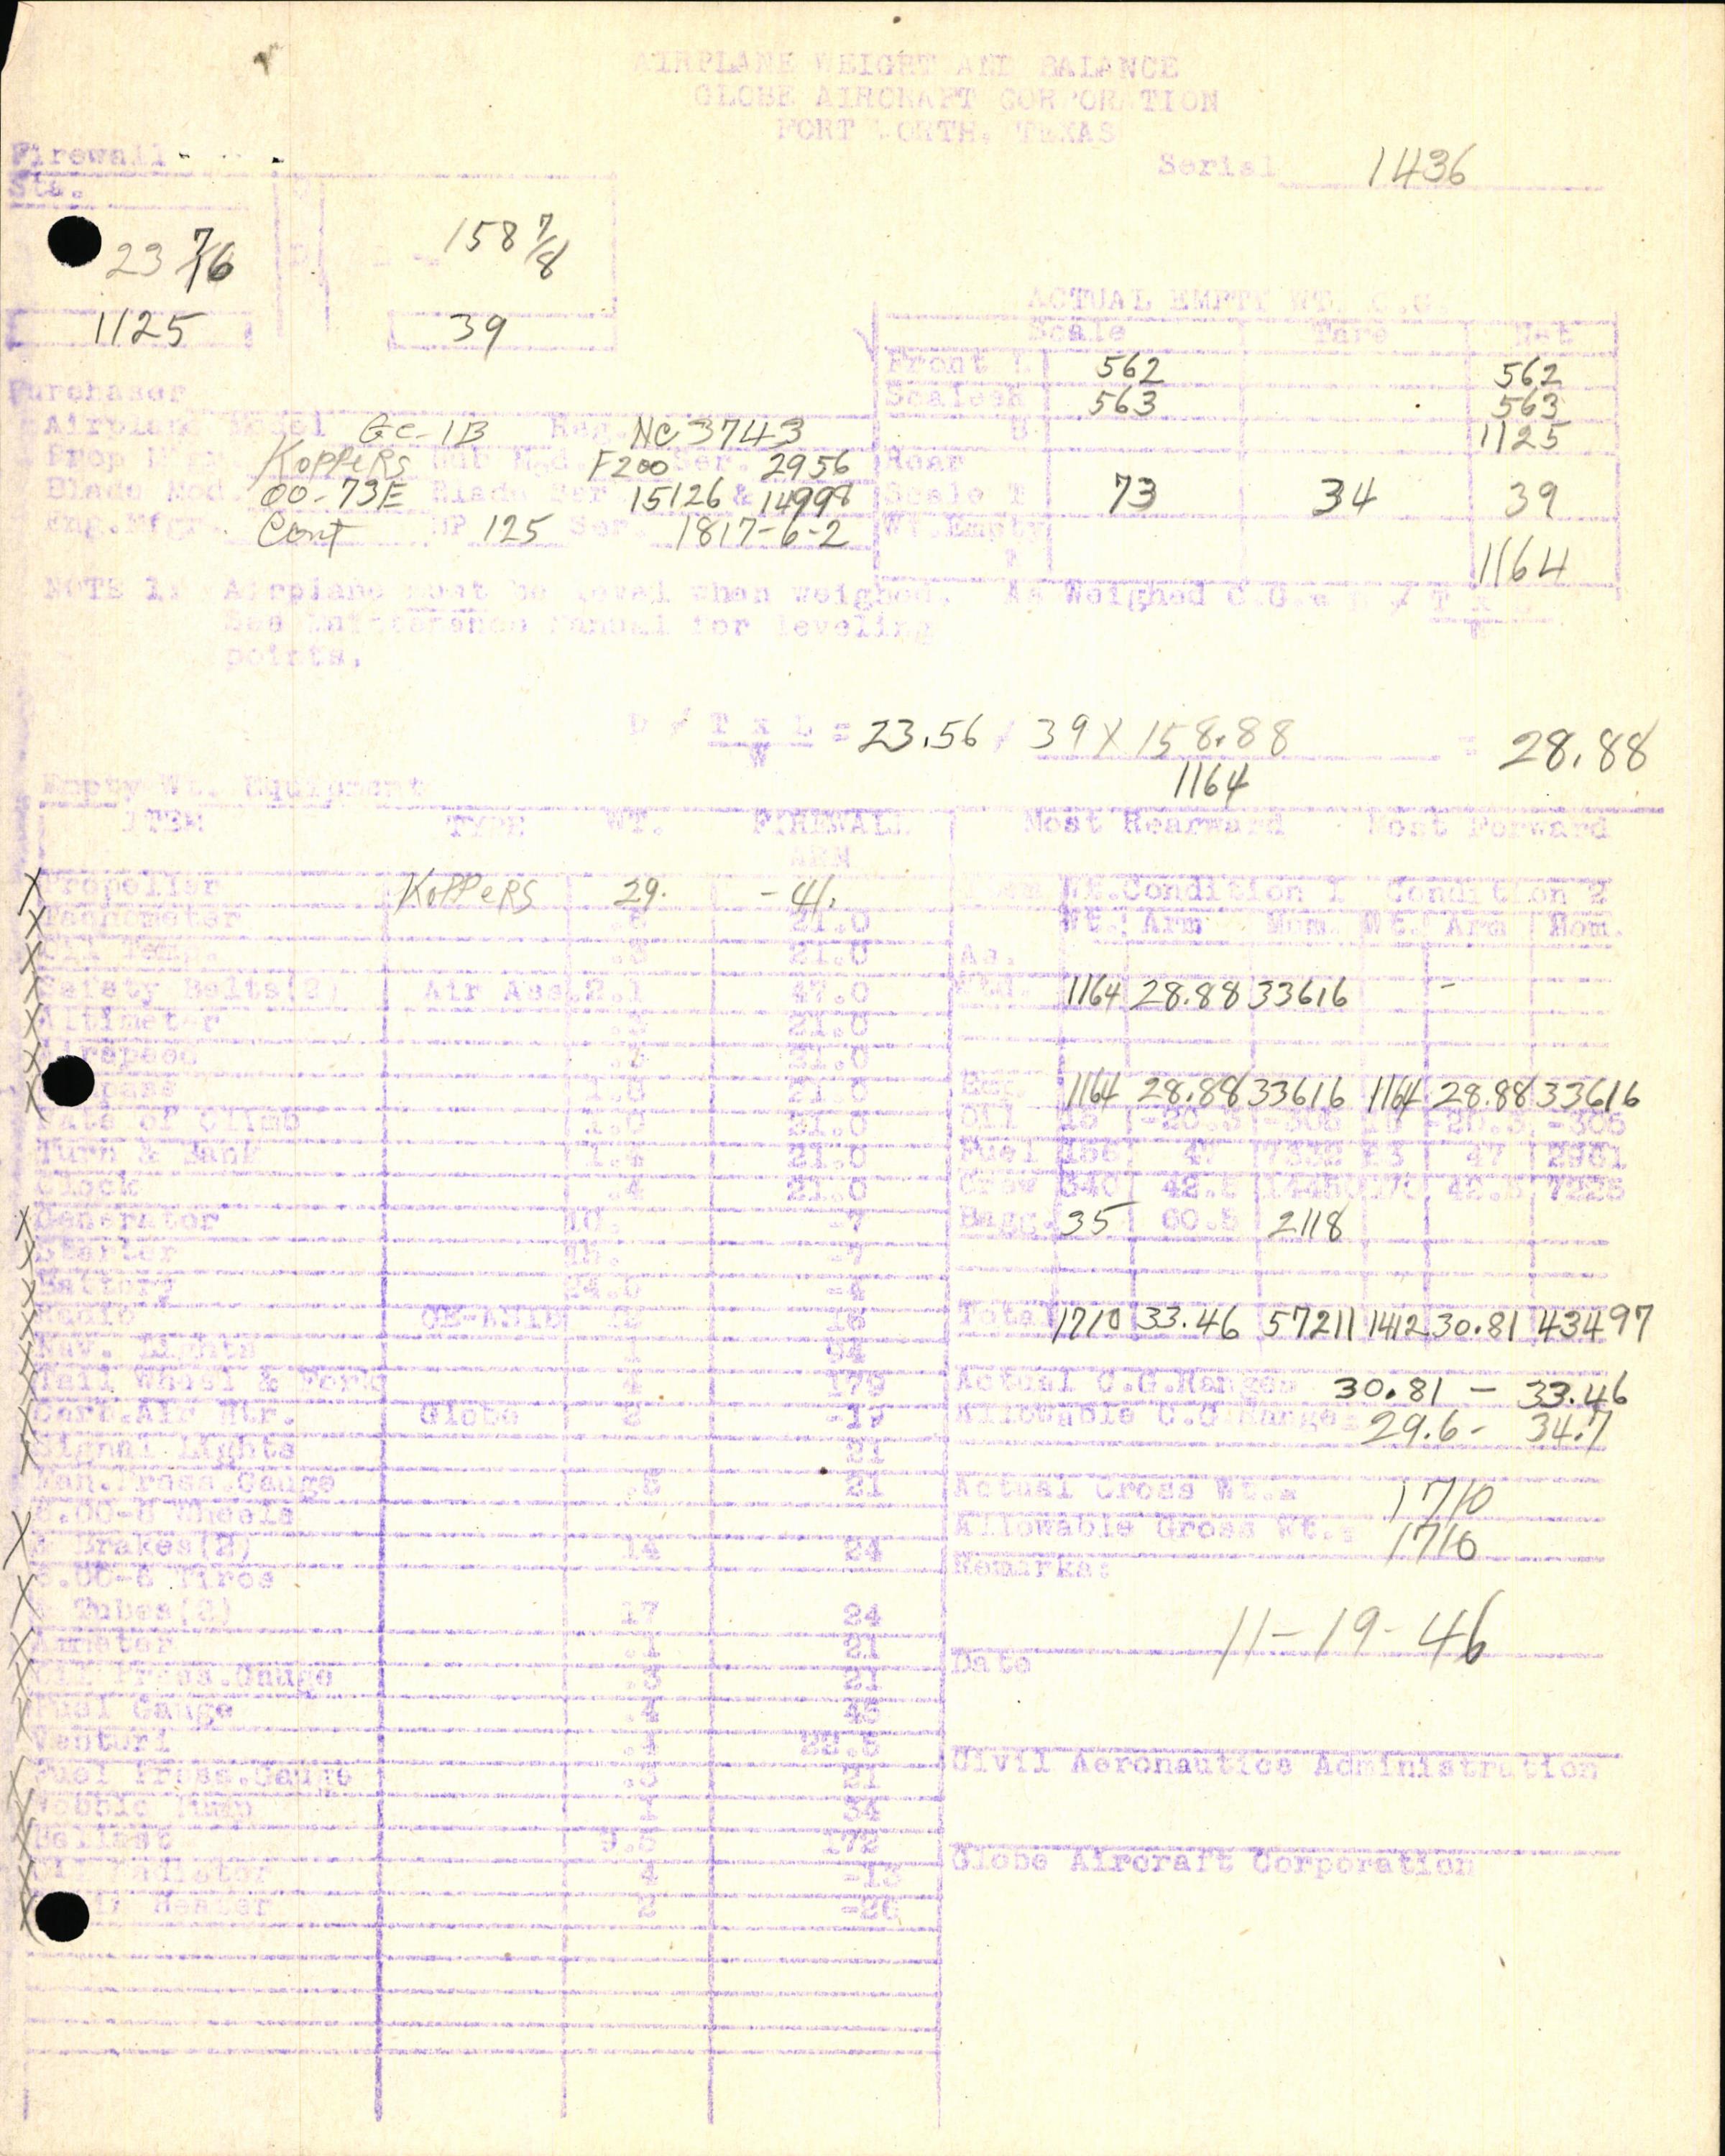 AIRPLANE WEIGHT AND BALANCE
GLOBE AIRCRAFT CORPORATION
FORT WORTH, TEXAS
Firewall
Sta.
Serial 1436
23 7/16
158 7/8
1125
39
ACTUAL EMPTY WT. C.G.
Scale Tare Net
Front L 562 562
Scales R 563 563
1125
Rear
Scale T 73 34 39
Wt. Empty
1164
Purchaser
Airplane Model GC-1B Reg. NC 3743
Prop Mfgr. Koppers Hub Mod. F200 Ser. 2956
Blade Mod. 00-73E Blade Ser. 15126 & 14998
Eng.Mfgr. Cont HP 125 Ser. 1817-6-2
NOTE 1: Airplane must be level when weighed.
See Maintenance Manual for leveling
points.
As Weighed C.G.=
D / T x L = 23.56 / 39 X 158.88 = 28.88
W 1164
Empty Wt. Equipment
ITEM TYPE WT. FIREWALL
ARM
Propeller Koppers 29. -41.
Tachometer 21.0
21.0
Safety Belts(2) Air Ass. 2.1 47.0
Altimeter 21.0
Airspeed 21.0
21.0
Rate of Climb 1.0 21.0
Turn & Bank 1.4 21.0
Clock .4 21.0
Generator 10. -7
Starter -7
Battery 24.0
Radio
Nav. Lights 1
Tail Wheel & Fork 4
Carb.Air Htr. Globe
Signal Lights 21
Man.Press.Gauge 21
6.00-6 Wheels
& Brakes(2) 14 24
6.00-6 Tires
& Tubes(2) 17 24
Ammeter .1 21
Oil Press.Gauge .3 21
Fuel Gauge .4
Venturi .4
Fuel Press.Gauge .3 21
Wobble Pump 34
Ballast 9.5 172
Oil Radiator 4 -13
Heater 2
Most Rearward Most Forward
Item Wt.Condition 1 Condition 2
Wt. Arm Mom. Wt. Arm Mom.
As.
Wtd. 1164 28.88 33616 -
1164 28.88 33616 1164 28.88 33616
Oil
Fuel 156 47 7332 47
Crew 340 42.5
Bagg. 35 60.5 2118
Total 1710 33.46 57211 1412 30.81 43497
Actual C.G.Range= 30.81 - 33.46
Allowable C.G.Range= 29.6 - 34.7
Actual Gross Wt.= 1710
Allowable Gross Wt.= 1710
Remarks:
11-19-46
Date
Civil Aeronautics Administration
Globe Aircraft Corporation